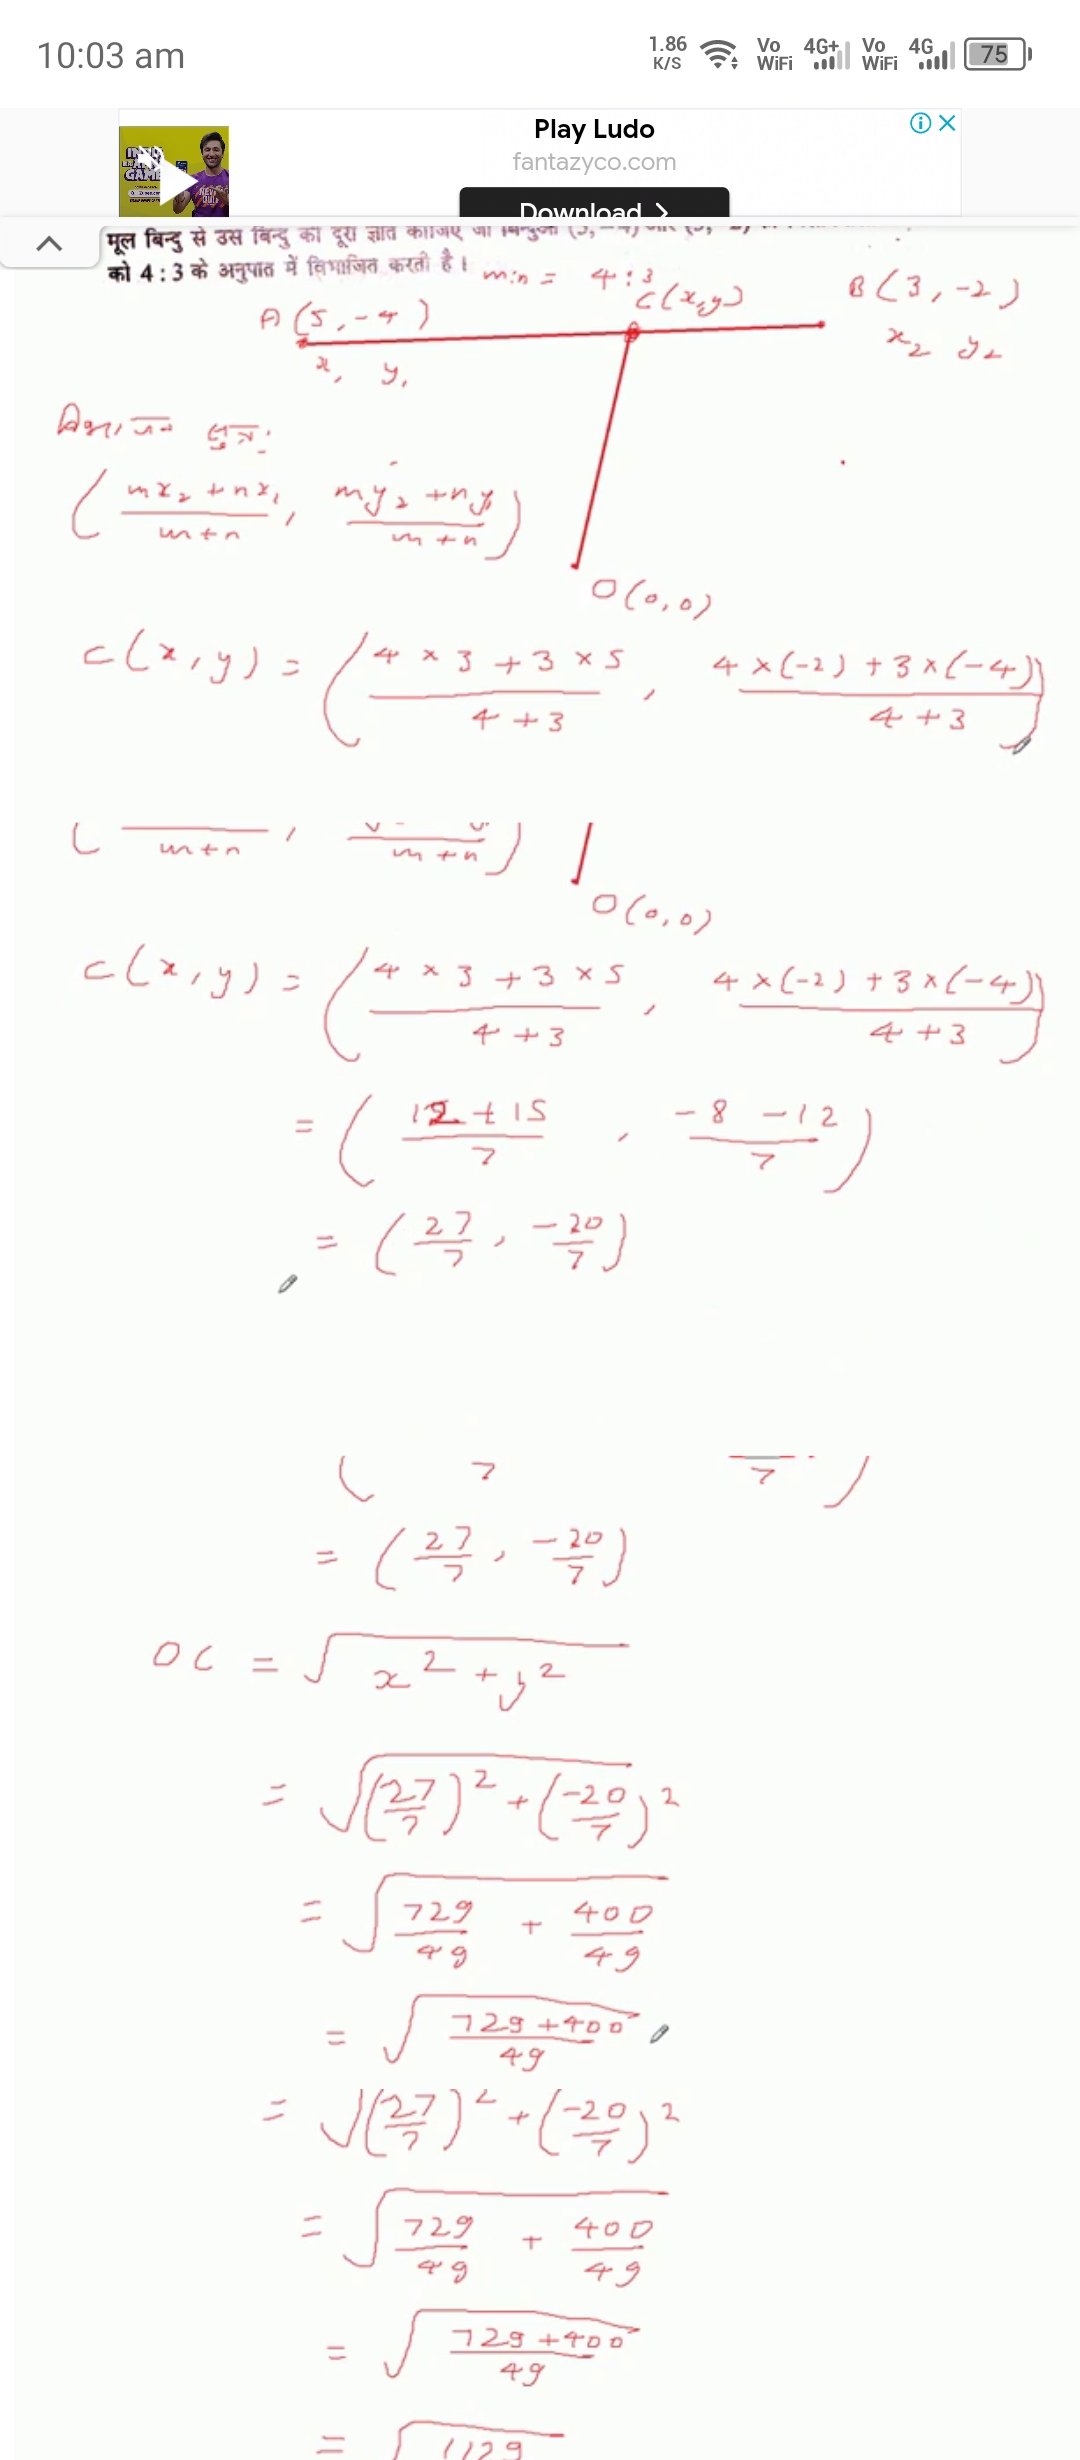 10:03 am
1.86 K/S Vo WiFi 4G+ Vo WiFi 4G 75
Play Ludo
fantazyco.com
Download >
मूल बिन्दु से उस बिन्दु की दूरी ज्ञात कीजिए जो बिन्दुओं (5, -4) और (3, -2)
को 4 : 3 के अनुपात में विभाजित करती है।
m:n = 4:3
A (5, -4) C(x,y) B (3, -2)
x₁ y₁ x₂ y₂
विभाजन सूत्र:
(mx₂ + nx₁ / m+n, my₂ + ny₁ / m+n)
O(0,0)
C(x,y) = (4 × 3 + 3 × 5 / 4 + 3, 4 × (-2) + 3 × (-4) / 4 + 3)
( m+n, m+n)
O(0,0)
C(x,y) = (4 × 3 + 3 × 5 / 4 + 3, 4 × (-2) + 3 × (-4) / 4 + 3)
= (12 + 15 / 7, -8 -12 / 7)
= (27/7, -20/7)
( 7 7 )
= (27/7, -20/7)
OC = √x² + y²
= √(27/7)² + (-20/7)²
= √729/49 + 400/49
= √729+400/49
= √(27/7)² + (-20/7)²
= √729/49 + 400/49
= √729+400/49
= √1129